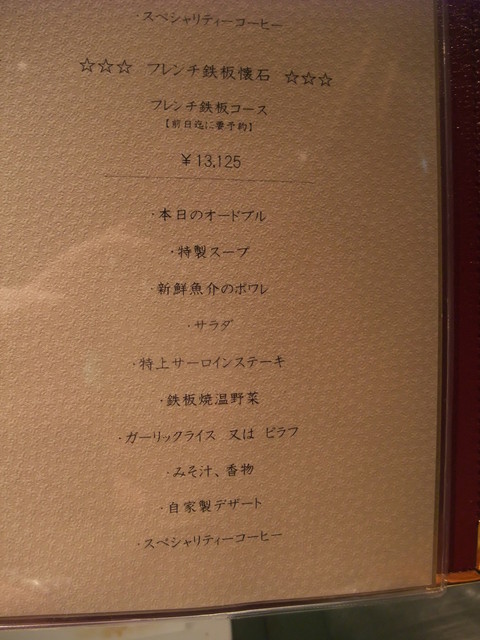 ・スペシャリティーコーヒー
☆☆☆ フレンチ鉄板懐石 ☆☆☆
フレンチ鉄板コース
【前日迄に要予約】
¥13,125
・本日のオードブル
・特製スープ
・新鮮魚介のポワレ
・サラダ
・特上サーロインステーキ
・鉄板焼温野菜
・ガーリックライス 又は ピラフ
・みそ汁、香物
・自家製デザート
・スペシャリティーコーヒー